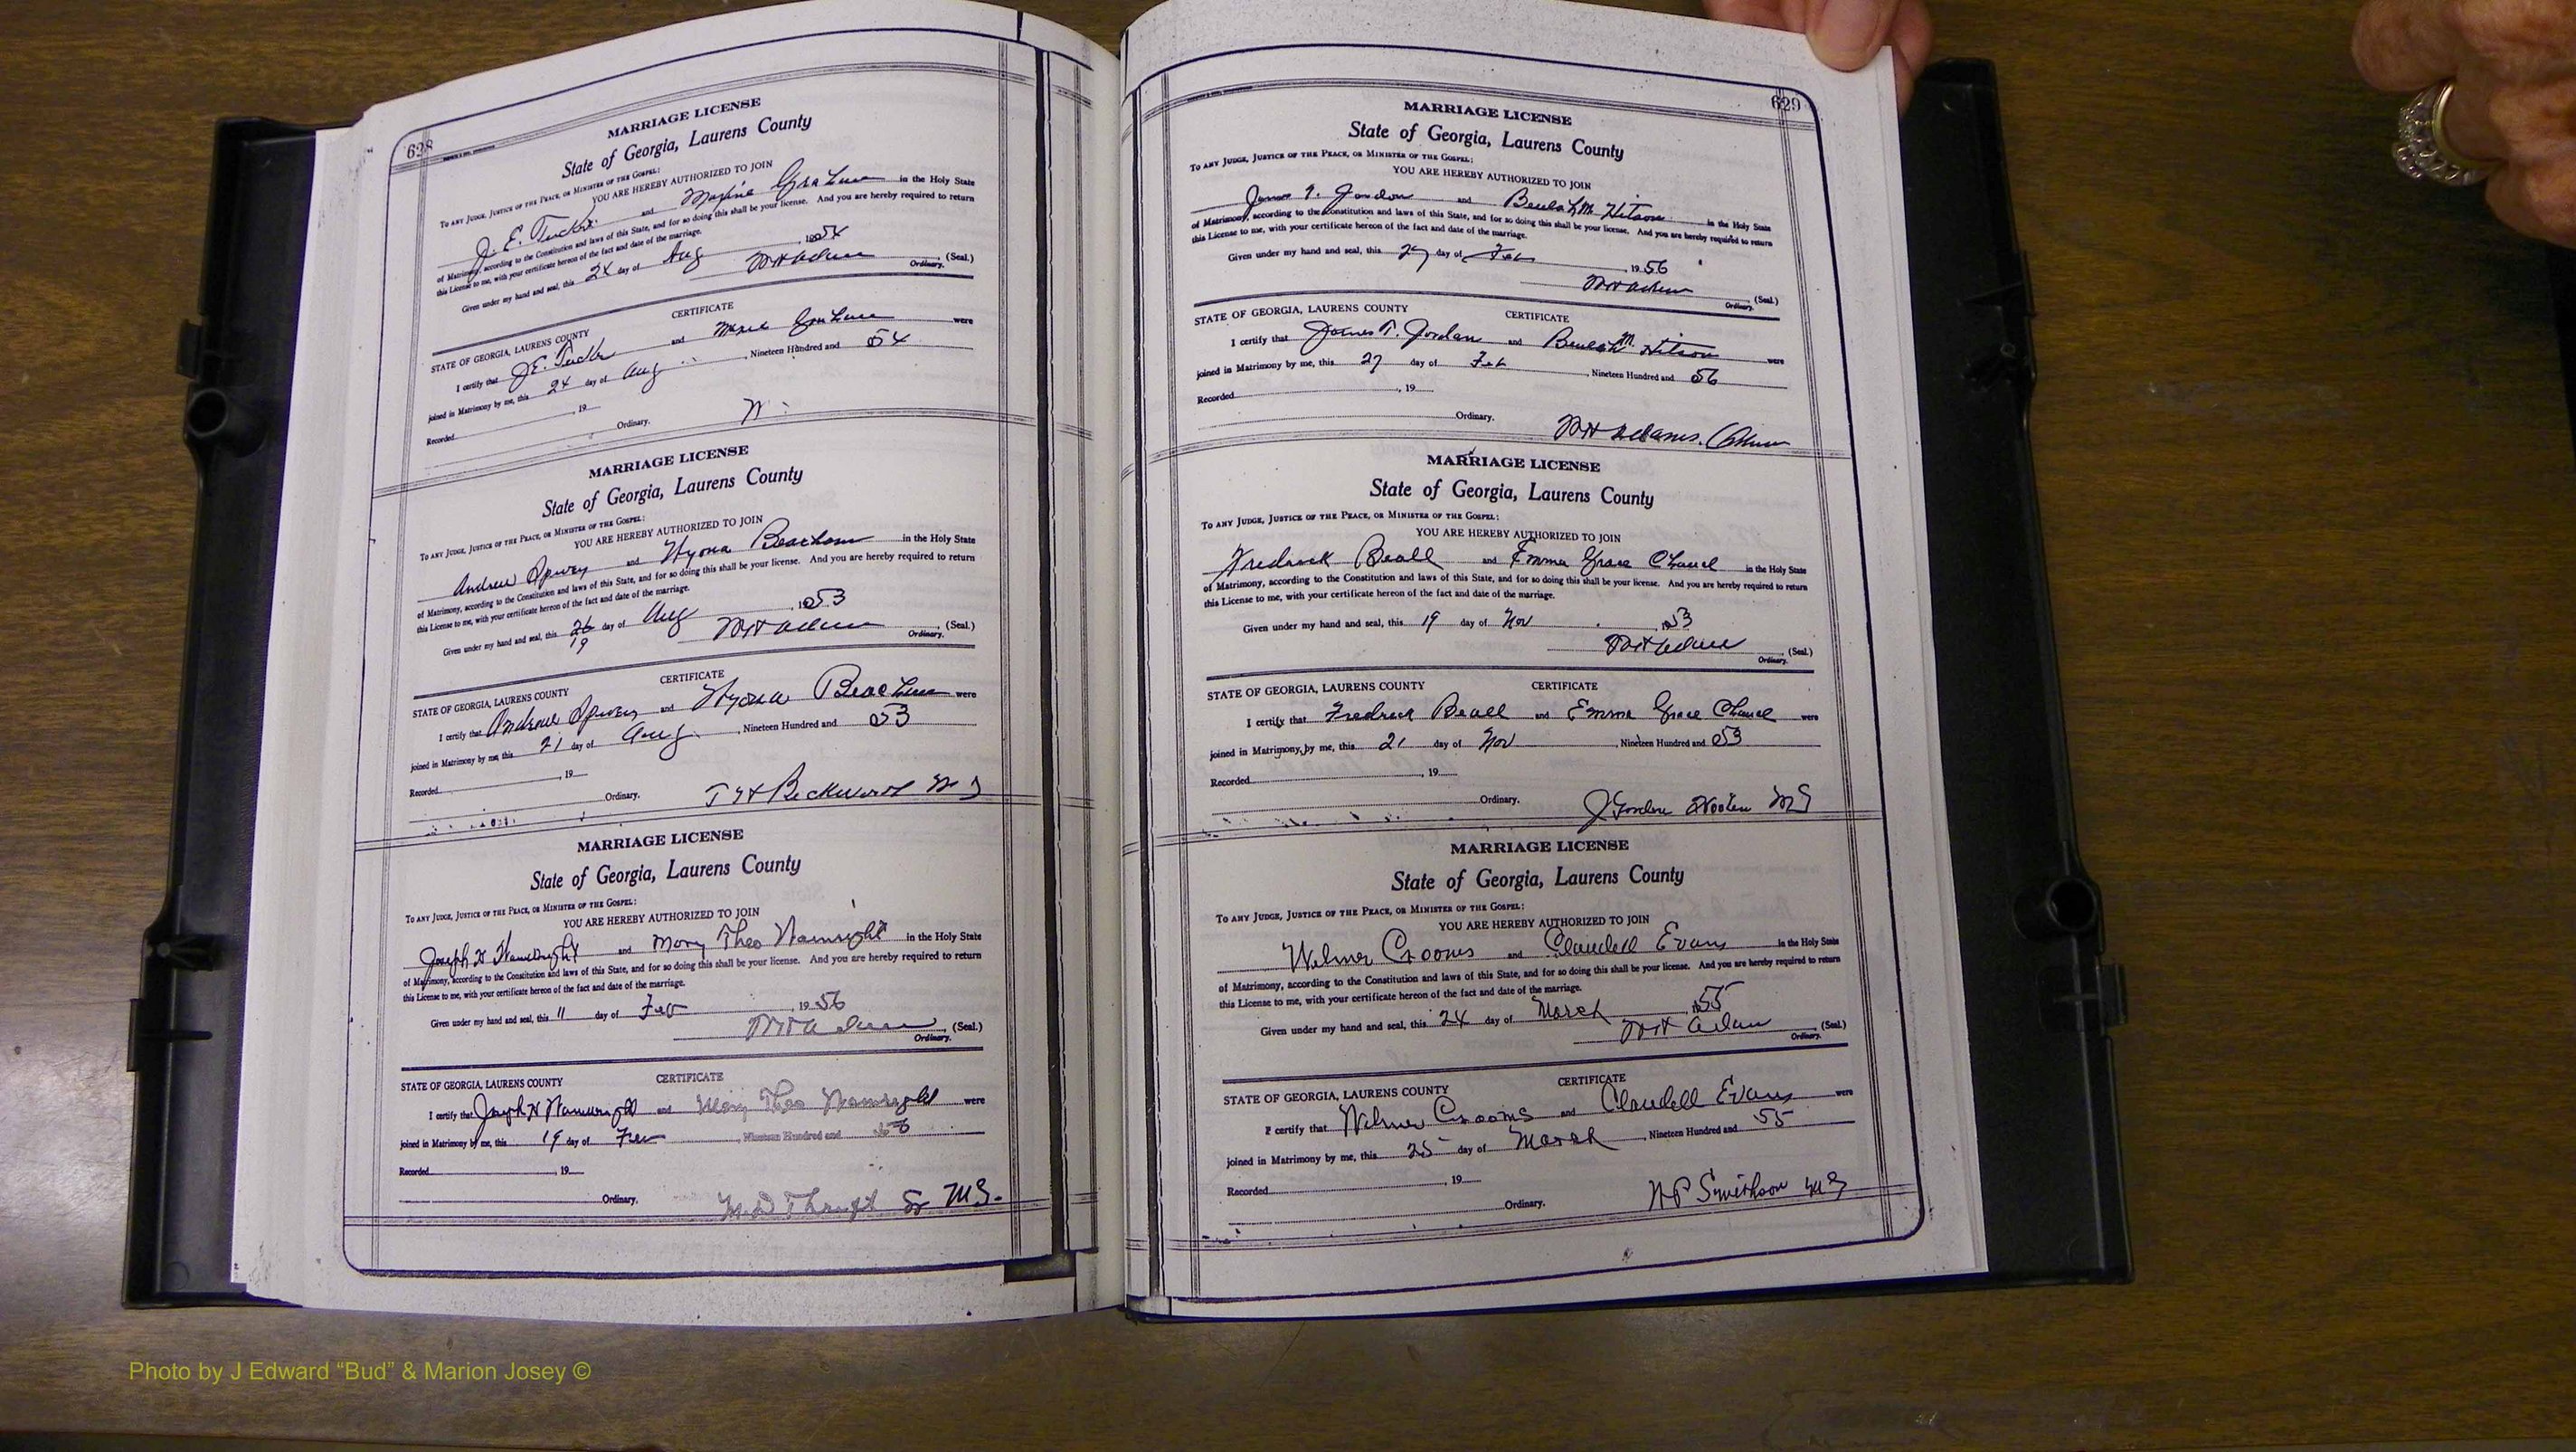 628
MARRIAGE LICENSE
State of Georgia, Laurens County
To any Judge, Justice of the Peace, or Minister of the Gospel:
YOU ARE HEREBY AUTHORIZED TO JOIN
J. E. Tucker and Maxine Graham in the Holy State
of Matrimony, according to the Constitution and laws of this State, and for so doing this shall be your license. And you are hereby required to return
this License to me, with your certificate hereon of the fact and date of the marriage.
Given under my hand and seal, this 24 day of Aug, 1954
(Seal.)
Ordinary.
CERTIFICATE
STATE OF GEORGIA, LAURENS COUNTY
I certify that J E. Tucker and were
joined in Matrimony by me, this 24 day of Aug, Nineteen Hundred and 54
Recorded, 19
Ordinary.
MARRIAGE LICENSE
State of Georgia, Laurens County
To any Judge, Justice of the Peace, or Minister of the Gospel:
YOU ARE HEREBY AUTHORIZED TO JOIN
Andrew Spivey and Beacham in the Holy State
of Matrimony, according to the Constitution and laws of this State, and for so doing this shall be your license. And you are hereby required to return
this License to me, with your certificate hereon of the fact and date of the marriage.
Given under my hand and seal, this 26 19 day of Aug, 1953
(Seal.)
Ordinary.
CERTIFICATE
STATE OF GEORGIA, LAURENS COUNTY
I certify that Andrew Spivey and Beacham were
joined in Matrimony by me, this 21 day of Aug, Nineteen Hundred and 53
Recorded, 19
Ordinary. Beckworth M G
MARRIAGE LICENSE
State of Georgia, Laurens County
To any Judge, Justice of the Peace, or Minister of the Gospel:
YOU ARE HEREBY AUTHORIZED TO JOIN
Joseph H Wainwright and Mary Theo Wainright in the Holy State
of Matrimony, according to the Constitution and laws of this State, and for so doing this shall be your license. And you are hereby required to return
this License to me, with your certificate hereon of the fact and date of the marriage.
Given under my hand and seal, this 11 day of Feb, 1956
(Seal.)
Ordinary.
CERTIFICATE
STATE OF GEORGIA, LAURENS COUNTY
I certify that Joseph H Wainwright and Mary Theo Wainright were
joined in Matrimony by me, this 19 day of Feb, Nineteen Hundred and 56
Recorded, 19
Ordinary. Sr M.G.
629
MARRIAGE LICENSE
State of Georgia, Laurens County
To any Judge, Justice of the Peace, or Minister of the Gospel:
YOU ARE HEREBY AUTHORIZED TO JOIN
James T. Jordon and Beulah M. Hitson in the Holy State
of Matrimony, according to the Constitution and laws of this State, and for so doing this shall be your license. And you are hereby required to return
this License to me, with your certificate hereon of the fact and date of the marriage.
Given under my hand and seal, this 27 day of Feb, 1956
(Seal.)
Ordinary.
CERTIFICATE
STATE OF GEORGIA, LAURENS COUNTY
I certify that James T. Jordan and Beulah M. Hitson were
joined in Matrimony by me, this 27 day of Feb, Nineteen Hundred and 56
Recorded, 19
Ordinary.
Adams.
MARRIAGE LICENSE
State of Georgia, Laurens County
To any Judge, Justice of the Peace, or Minister of the Gospel:
YOU ARE HEREBY AUTHORIZED TO JOIN
Fredrick Beall and Emma Grace in the Holy State
of Matrimony, according to the Constitution and laws of this State, and for so doing this shall be your license. And you are hereby required to return
this License to me, with your certificate hereon of the fact and date of the marriage.
Given under my hand and seal, this 19 day of Nov, 1953
(Seal.)
Ordinary.
CERTIFICATE
STATE OF GEORGIA, LAURENS COUNTY
I certify that Fredrick Beall and Emma Grace were
joined in Matrimony by me, this 21 day of Nov, Nineteen Hundred and 53
Recorded, 19
Ordinary. J Gordon Wooten MG
MARRIAGE LICENSE
State of Georgia, Laurens County
To any Judge, Justice of the Peace, or Minister of the Gospel:
YOU ARE HEREBY AUTHORIZED TO JOIN
Wilmer Crooms and Claudell Evans in the Holy State
of Matrimony, according to the Constitution and laws of this State, and for so doing this shall be your license. And you are hereby required to return
this License to me, with your certificate hereon of the fact and date of the marriage.
Given under my hand and seal, this 24 day of March, 1955
(Seal.)
Ordinary.
CERTIFICATE
STATE OF GEORGIA, LAURENS COUNTY
I certify that Wilmer Crooms and Claudell Evans were
joined in Matrimony by me, this 25 day of March, Nineteen Hundred and 55
Recorded, 19
Ordinary. Smithson MG
Photo by J Edward “Bud” & Marion Josey ©